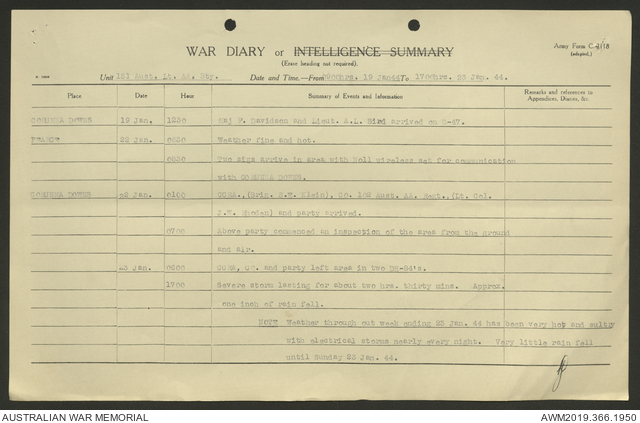 WAR DIARY or INTELLIGENCE SUMMARY
Army Form C. 2118
(adapted.)
(Erase heading not required).
Unit 151 Aust. Lt. AA. Bty. Date and Time.—From 0900hrs. 19 Jan44 To 1700hrs. 23 Jan. 44.
Place Date Hour Summary of Events and Information Remarks and references to Appendices, Diaries, &c.
19 Jan. 1230 Maj F. Davidson and Lieut. A.L. Bird arrived on C-47.
22 Jan. 0030 Weather fine and hot.
0030 Two sigs arrive in area with No11 wireless set for communication
with
22 Jan. 0100 CCRA., (Brig. B.W. Klein), CO. 102 Aust. AA. Regt., (Lt. Col.
J.W. Rhoden) and party arrived.
0700 Above party commenced an inspection of the area from the ground
and air.
23 Jan. 0600 CCRA, CO. and party left area in two
1700 Severe storm lasting for about two hrs. thirty mins. Approx.
one inch of rain fell.
NOTE Weather through out week ending 23 Jan. 44 has been very hot and sultry
with electrical storms nearly every night. Very little rain fell
until Sunday 23 Jan. 44.
AUSTRALIAN WAR MEMORIAL AWM2019.366.1950